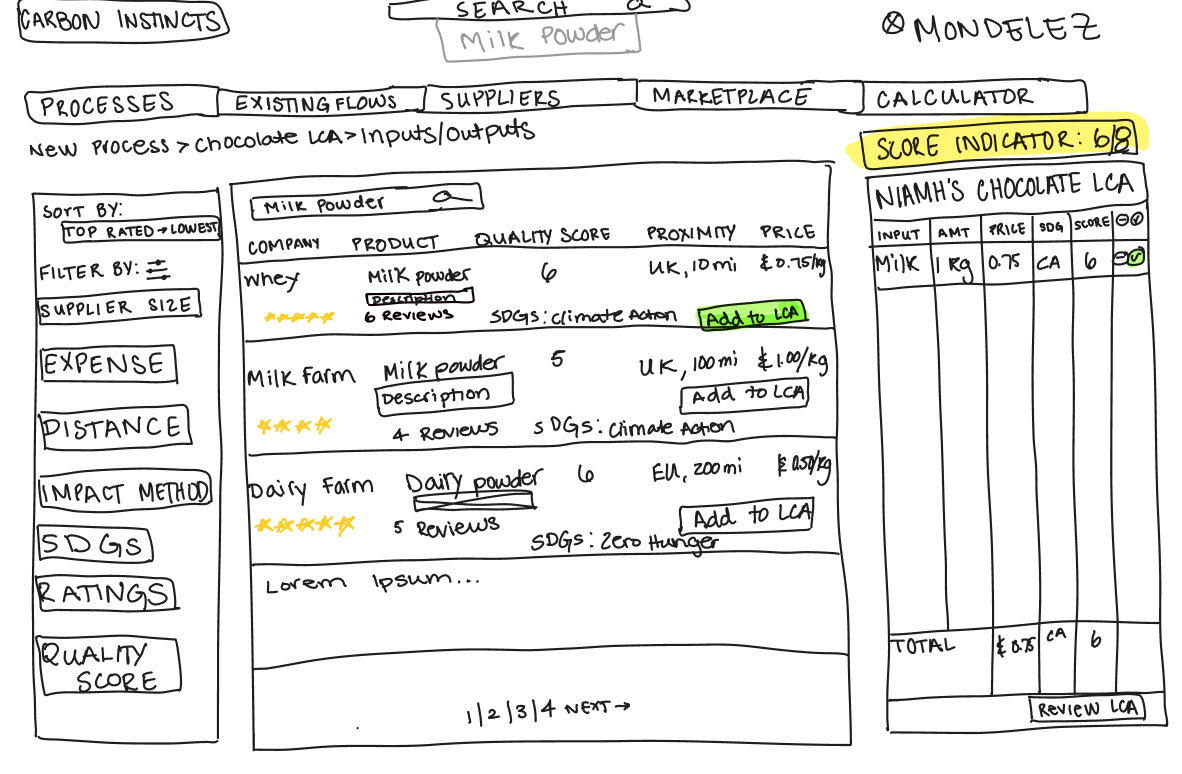 CARBON INSTINCTS
SEARCH
Milk Powder
MONDELEZ
PROCESSES
EXISTING FLOWS
SUPPLIERS
MARKETPLACE
CALCULATOR
New Process > Chocolate LCA > Inputs/Outputs
SCORE INDICATOR: 6/8
SORT BY:
TOP RATED → LOWEST
FILTER BY:
SUPPLIER SIZE
EXPENSE
DISTANCE
IMPACT METHOD
SDGS
RATINGS
QUALITY
SCORE
Milk Powder
COMPANY PRODUCT QUALITY SCORE PROXIMITY PRICE
Whey Milk Powder 6 UK, 10 mi £0.75/kg
Description
6 Reviews SDGs: Climate Action Add to LCA
Milk Farm Milk powder 5 UK, 100 mi £1.00/kg
Description Add to LCA
4 Reviews SDGs: Climate Action
Dairy Farm Dairy powder 6 EU, 200 mi £0.50/kg
5 Reviews Add to LCA
SDGs: Zero Hunger
Lorem Ipsum...
1|2|3|4 NEXT →
NIAMH'S CHOCOLATE LCA
INPUT AMT PRICE SDG SCORE
Milk 1 Kg 0.75 CA 6
TOTAL £0.75 CA 6
Review LCA